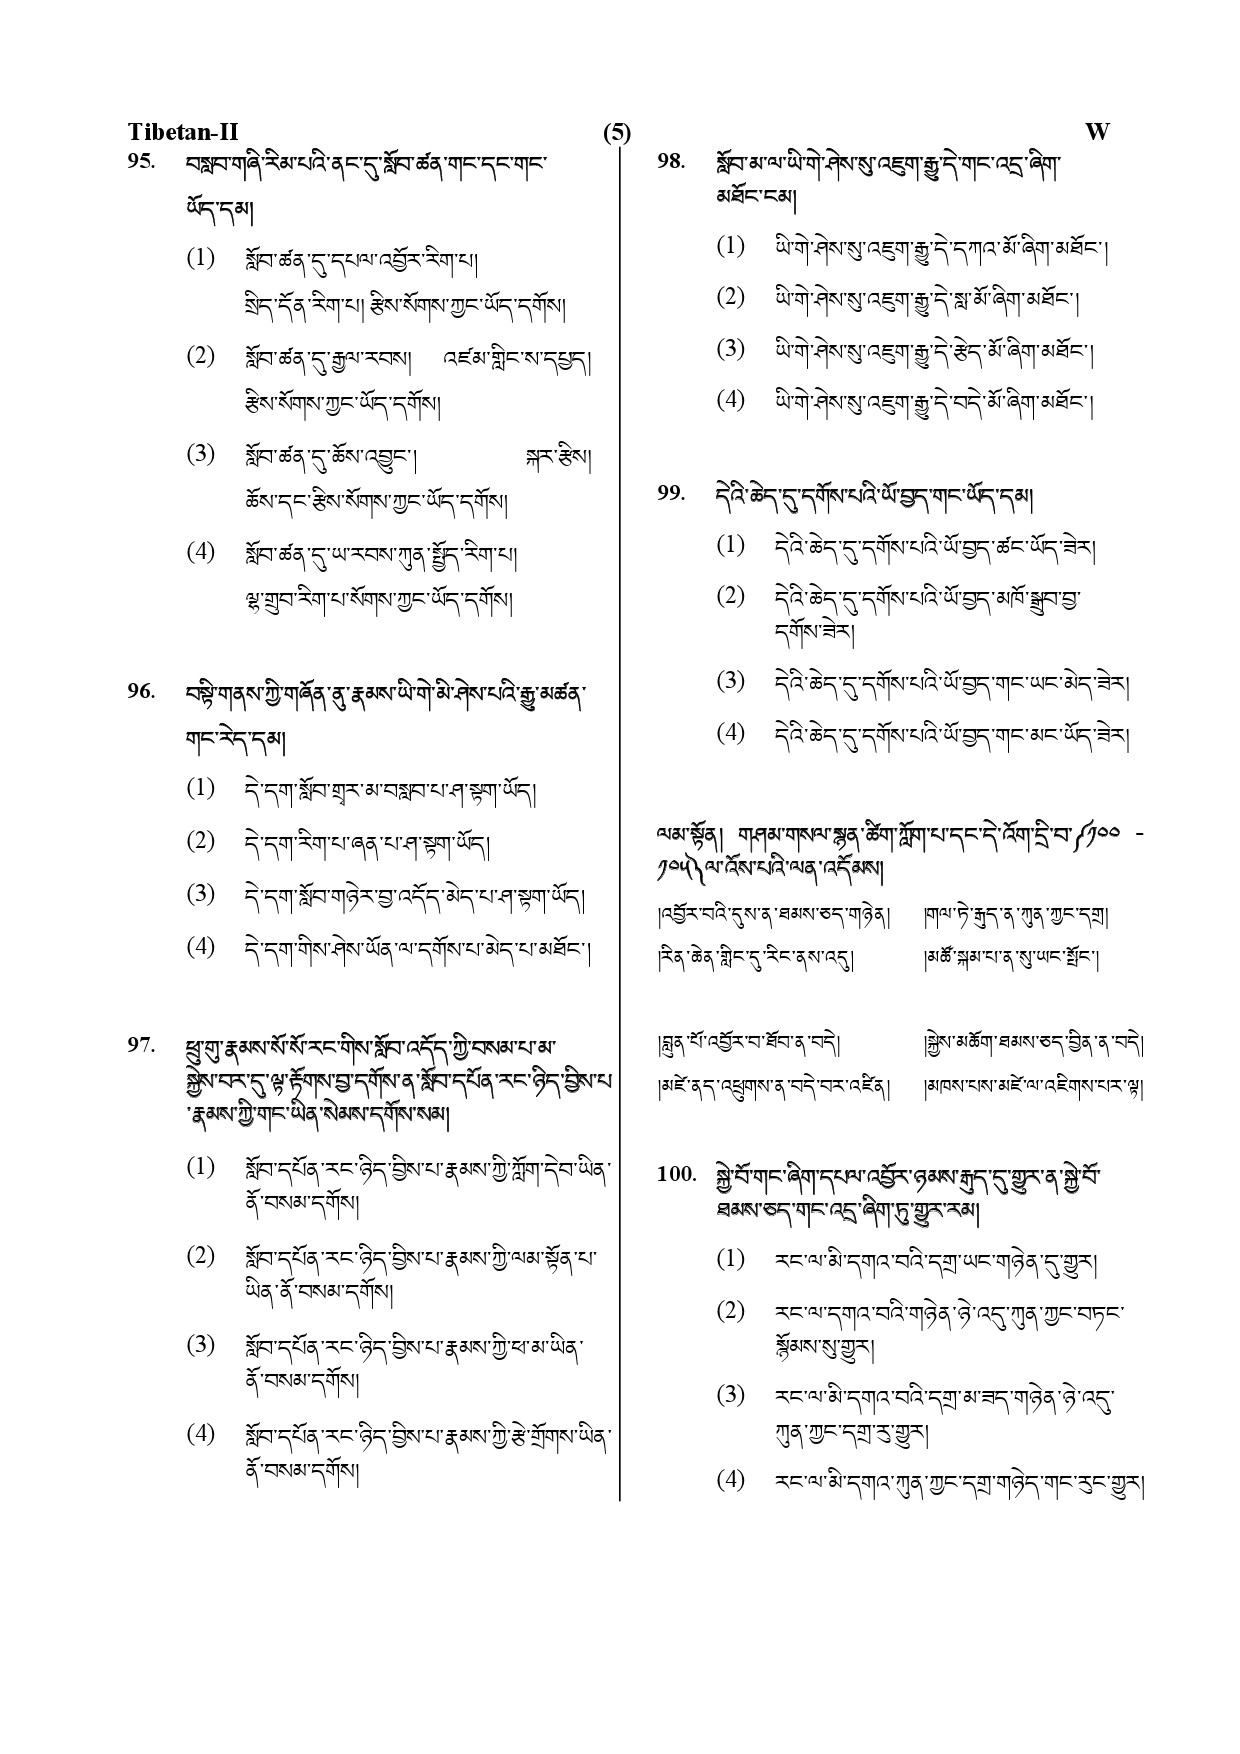 Tibetan-II (5) W
95. བསླབ་གཞི་རིམ་པའི་ནང་དུ་སློབ་ཚན་གང་དང་གང་
ཡོད་དམ།
(1) སློབ་ཚན་དུ་དཔལ་འབྱོར་རིག་པ།
སྲིད་དོན་རིག་པ། རྩིས་སོགས་ཀྱང་ཡོད་དགོས།
(2) སློབ་ཚན་དུ་རྒྱལ་རབས། འཛམ་གླིང་ས་དཔྱད།
རྩིས་སོགས་ཀྱང་ཡོད་དགོས།
(3) སློབ་ཚན་དུ་ཆོས་འབྱུང་། སྐར་རྩིས།
ཆོས་དང་རྩིས་སོགས་ཀྱང་ཡོད་དགོས།
(4) སློབ་ཚན་དུ་ཡ་རབས་ཀུན་སྤྱོད་རིག་པ།
ལྷ་གྲུབ་རིག་པ་སོགས་ཀྱང་ཡོད་དགོས།
96. བསྟི་གནས་ཀྱི་གཞོན་ནུ་རྣམས་ཡི་གེ་མི་ཤེས་པའི་རྒྱུ་མཚན་
གང་རེད་དམ།
(1) དེ་དག་སློབ་གྲྭར་མ་བསླབ་པ་ཤ་སྟག་ཡོད།
(2) དེ་དག་རིག་པ་ཞན་པ་ཤ་སྟག་ཡོད།
(3) དེ་དག་སློབ་གཉེར་བྱ་འདོད་མེད་པ་ཤ་སྟག་ཡོད།
(4) དེ་དག་གིས་ཤེས་ཡོན་ལ་དགོས་པ་མེད་པ་མཐོང་།
97. ཕྲུ་གུ་རྣམས་སོ་སོ་རང་གིས་སློབ་འདོད་ཀྱི་བསམ་པ་མ་
སྐྱེས་བར་དུ་ལྟ་རྟོགས་བྱ་དགོས་ན་སློབ་དཔོན་རང་ཉིད་བྱིས་པ
་རྣམས་ཀྱི་གང་ཡིན་སེམས་དགོས་སམ།
(1) སློབ་དཔོན་རང་ཉིད་བྱིས་པ་རྣམས་ཀྱི་ཀློག་དེབ་ཡིན་
ནོ་བསམ་དགོས།
(2) སློབ་དཔོན་རང་ཉིད་བྱིས་པ་རྣམས་ཀྱི་ལམ་སྟོན་པ་
ཡིན་ནོ་བསམ་དགོས།
(3) སློབ་དཔོན་རང་ཉིད་བྱིས་པ་རྣམས་ཀྱི་ཕ་མ་ཡིན་
ནོ་བསམ་དགོས།
(4) སློབ་དཔོན་རང་ཉིད་བྱིས་པ་རྣམས་ཀྱི་རྩེ་གྲོགས་ཡིན་
ནོ་བསམ་དགོས།
98. སློབ་མ་ལ་ཡི་གེ་ཤེས་སུ་འཇུག་རྒྱུ་དེ་གང་འདྲ་ཞིག་
མཐོང་ངམ།
(1) ཡི་གེ་ཤེས་སུ་འཇུག་རྒྱུ་དེ་དཀའ་མོ་ཞིག་མཐོང་།
(2) ཡི་གེ་ཤེས་སུ་འཇུག་རྒྱུ་དེ་སླ་མོ་ཞིག་མཐོང་།
(3) ཡི་གེ་ཤེས་སུ་འཇུག་རྒྱུ་དེ་རྩེད་མོ་ཞིག་མཐོང་།
(4) ཡི་གེ་ཤེས་སུ་འཇུག་རྒྱུ་དེ་བདེ་མོ་ཞིག་མཐོང་།
99. དེའི་ཆེད་དུ་དགོས་པའི་ཡོ་བྱད་གང་ཡོད་དམ།
(1) དེའི་ཆེད་དུ་དགོས་པའི་ཡོ་བྱད་ཚང་ཡོད་ཟེར།
(2) དེའི་ཆེད་དུ་དགོས་པའི་ཡོ་བྱད་མཁོ་སྒྲུབ་བྱ་
དགོས་ཟེར།
(3) དེའི་ཆེད་དུ་དགོས་པའི་ཡོ་བྱད་གང་ཡང་མེད་ཟེར།
(4) དེའི་ཆེད་དུ་དགོས་པའི་ཡོ་བྱད་གང་མང་ཡོད་ཟེར།
ལམ་སྟོན། གཤམ་གསལ་སྙན་ཚིག་ཀློག་པ་དང་དེ་འོག་དྲི་བ་༼༡༠༠ -
༡༠༥༽ལ་འོས་པའི་ལན་འདོམས།
།འབྱོར་བའི་དུས་ན་ཐམས་ཅད་གཉེན། །གལ་ཏེ་རྒུད་ན་ཀུན་ཀྱང་དགྲ།
།རིན་ཆེན་གླིང་དུ་རིང་ནས་འདུ། །མཚོ་སྐམ་པ་ན་སུ་ཡང་སྤོང་།
།བླུན་པོ་འབྱོར་བ་ཐོབ་ན་བདེ། །སྐྱེས་མཆོག་ཐམས་ཅད་བྱིན་ན་བདེ།
།མཛེ་ནད་འཕྲུགས་ན་བདེ་བར་འཛིན། །མཁས་པས་མཛེ་ལ་འཇིགས་པར་ལྟ།
100. སྐྱེ་བོ་གང་ཞིག་དཔལ་འབྱོར་ཉམས་རྒུད་དུ་གྱུར་ན་སྐྱེ་བོ་
ཐམས་ཅད་གང་འདྲ་ཞིག་ཏུ་གྱུར་རམ།
(1) རང་ལ་མི་དགའ་བའི་དགྲ་ཡང་གཉེན་དུ་གྱུར།
(2) རང་ལ་དགའ་བའི་གཉེན་ཉེ་འདུ་ཀུན་ཀྱང་བཏང་
སྙོམས་སུ་གྱུར།
(3) རང་ལ་མི་དགའ་བའི་དགྲ་མ་ཟད་གཉེན་ཉེ་འདུ་
ཀུན་ཀྱང་དགྲ་རུ་གྱུར།
(4) རང་ལ་མི་དགའ་ཀུན་ཀྱང་དགྲ་གཉེད་གང་རུང་གྱུར།